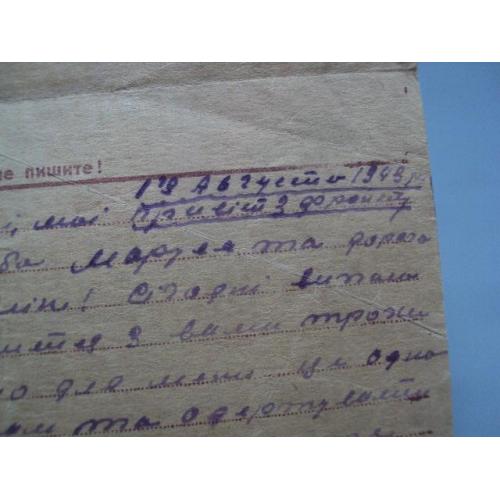 не пишите!
1го Августа 1943 р.
мої Привіт з фронту
Маруся та дорога
! Сьогодні випала
з вами трохи
но для мене це одно
вам та одержувати